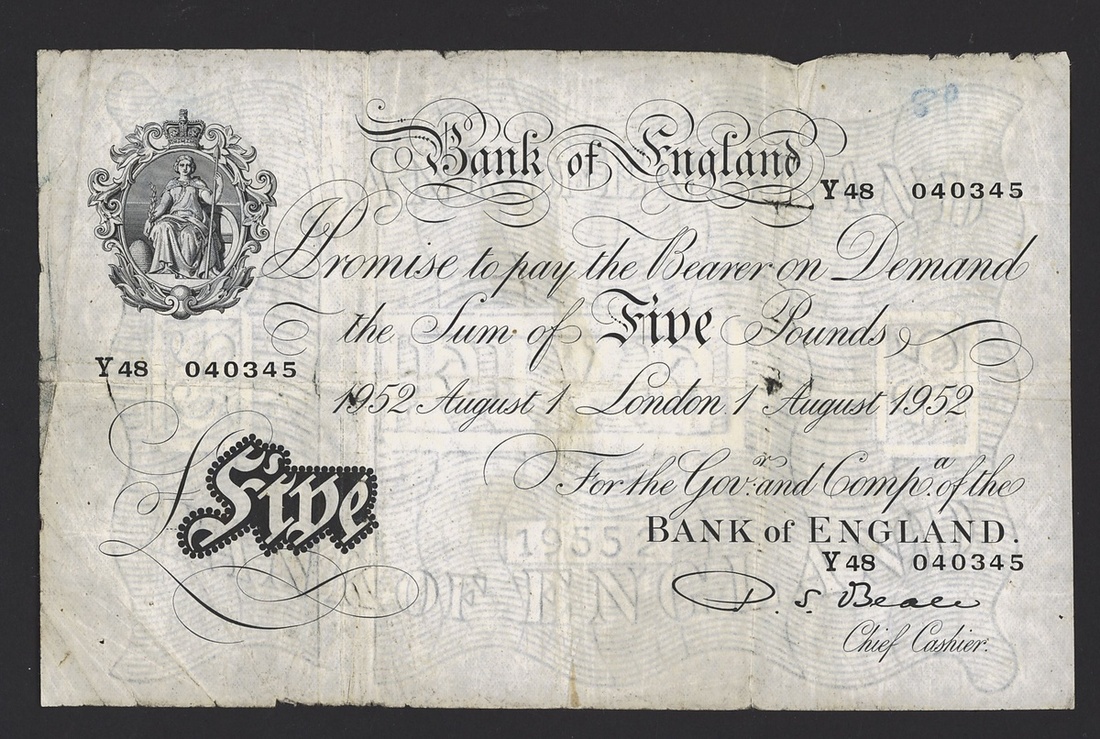 Bank of England
Y48 040345
I Promise to pay the Bearer on Demand
the Sum of Five Pounds
Y48 040345
1952 August 1 London 1 August 1952
For the Govr. and Compa. of the
BANK of ENGLAND.
£Five
Y48 040345
P. S. Beale
Chief Cashier.